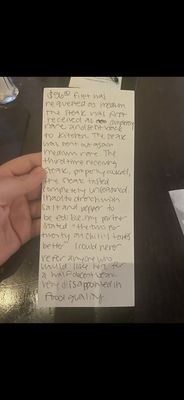 $56⁰⁰ filet was
requested as medium
The steak was first
received as completely
rare and sent back
to kitchen. The steak
was sent out again
medium rare. The
third time receiving
steak, properly cooked,
the steak tasted
completely unseasoned.
I had to drench with
salt and pepper to
be edible. my partner
stated "the two for
twenty at chili's tastes
better" I could never
refer anyone who
would like to for
a half decent steak
very disappointed in
food quality